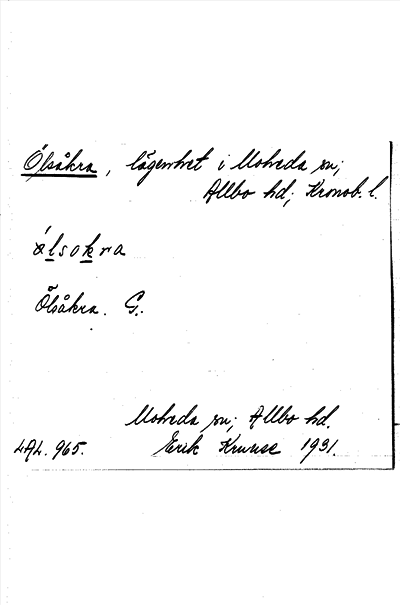 Ölsåkra, lägenhet i Moheda sn;
Allbo hd; Kronob. l.
ö́lsokra
Ölsåkra. G.
Moheda sn; Allbo hd.
LAL. 965. Erik Kruuse 1931.